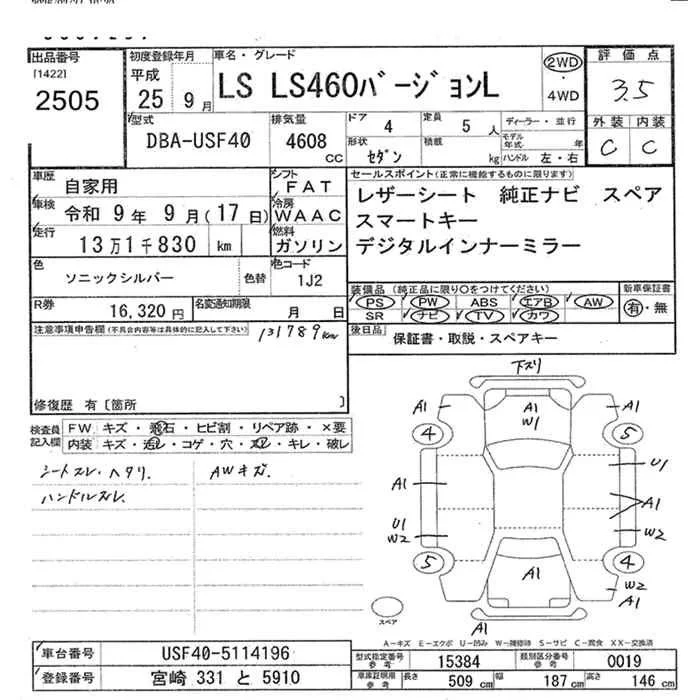 出品番号
[1422]
2505
初度登録年月
平成
25 9月
車名・グレード
LS LS460バージョンL
2WD
・
4WD
評価点
3.5
外装 内装
C C
型式
DBA-USF40
排気量
4608
CC
ドア
4
定員
5人
形状
セダン
積載
kg
ディーラー・並行
モデル年式
年
ハンドル 左・右
車歴
自家用
シフト
FAT
車検
令和 9年 9月(17日)
冷房
WAAC
走行
13万1千830 km
燃料
ガソリン
色
ソニックシルバー
色替
色コード
1J2
R券
16,320円
名変通知期限
月 日
セールスポイント(正常に機能するものに限ります)
レザーシート 純正ナビ スペア
スマートキー
デジタルインナーミラー
装備品 (純正品に限り○をつけてください)
PS PW ABS エアB AW
SR ナビ TV カワ
新車保証書
有・無
後日品
保証書・取説・スペアキー
注意事項申告欄(不具合内容等は具体的に記入して下さい)
131789km
修復歴 有〔箇所 〕
検査員記入欄
FW キズ・飛石・ヒビ割・リペア跡・×要
内装 キズ・汚レ・コゲ・穴・スレ・キレ・破レ
シートスレ、ヘタリ、
ハンドルスレ、
AWキズ、
下スリ
A1
A1
W1
A1
4
5
A1
U1
A1
U1
W2
W2
5
4
A1
W2
A1
A1
スペア
A-キズ E-エクボ U-凹み W-補修跡 S-サビ C-腐食 XX-交換済
車台番号
USF40-5114196
登録番号
宮崎 331 と 5910
型式指定番号
参考
15384
類別区分番号
参考
0019
車庫証明用
参考
長さ
509 cm
幅
187 cm
高さ
146 cm